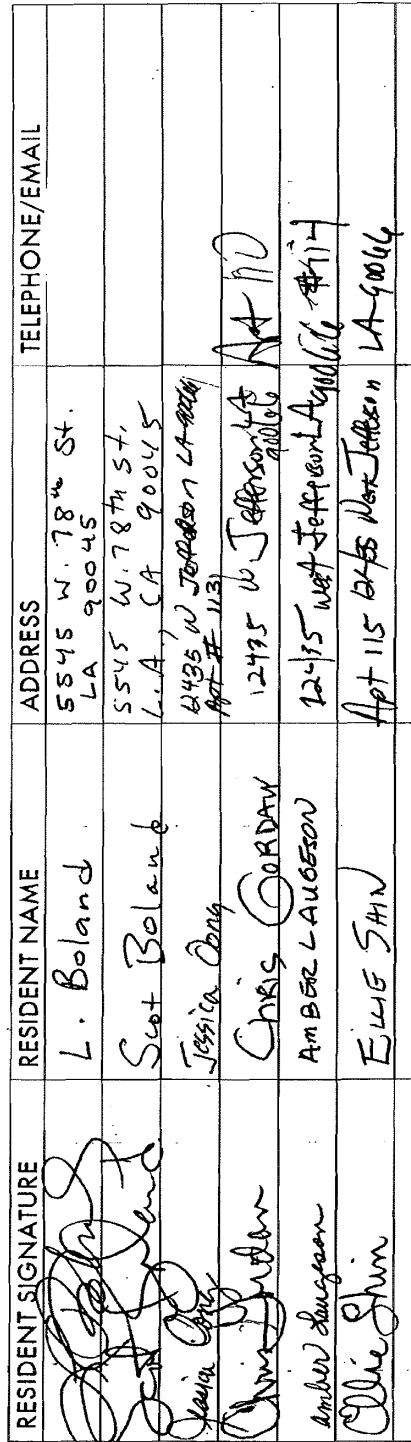 RESIDENT SIGNATURE RESIDENT NAME ADDRESS TELEPHONE/EMAIL
L. Boland 5545 W. 78th St.
LA 90045
Scot Boland 5545 W. 78th St.
L.A., CA 90045
Jessica Ong Jessica Ong 12435 W Jefferson LA 90066
Apt # 1131
Chris Gordan Chris GORDAN 12435 W Jefferson LA Apt 110
90066
Amber Laugeson AMBER LAUGESON 12435 West Jefferson LA 90066 #114
Ellie Shin ELLIE SHIN Apt 115 12435 West Jefferson LA 90066